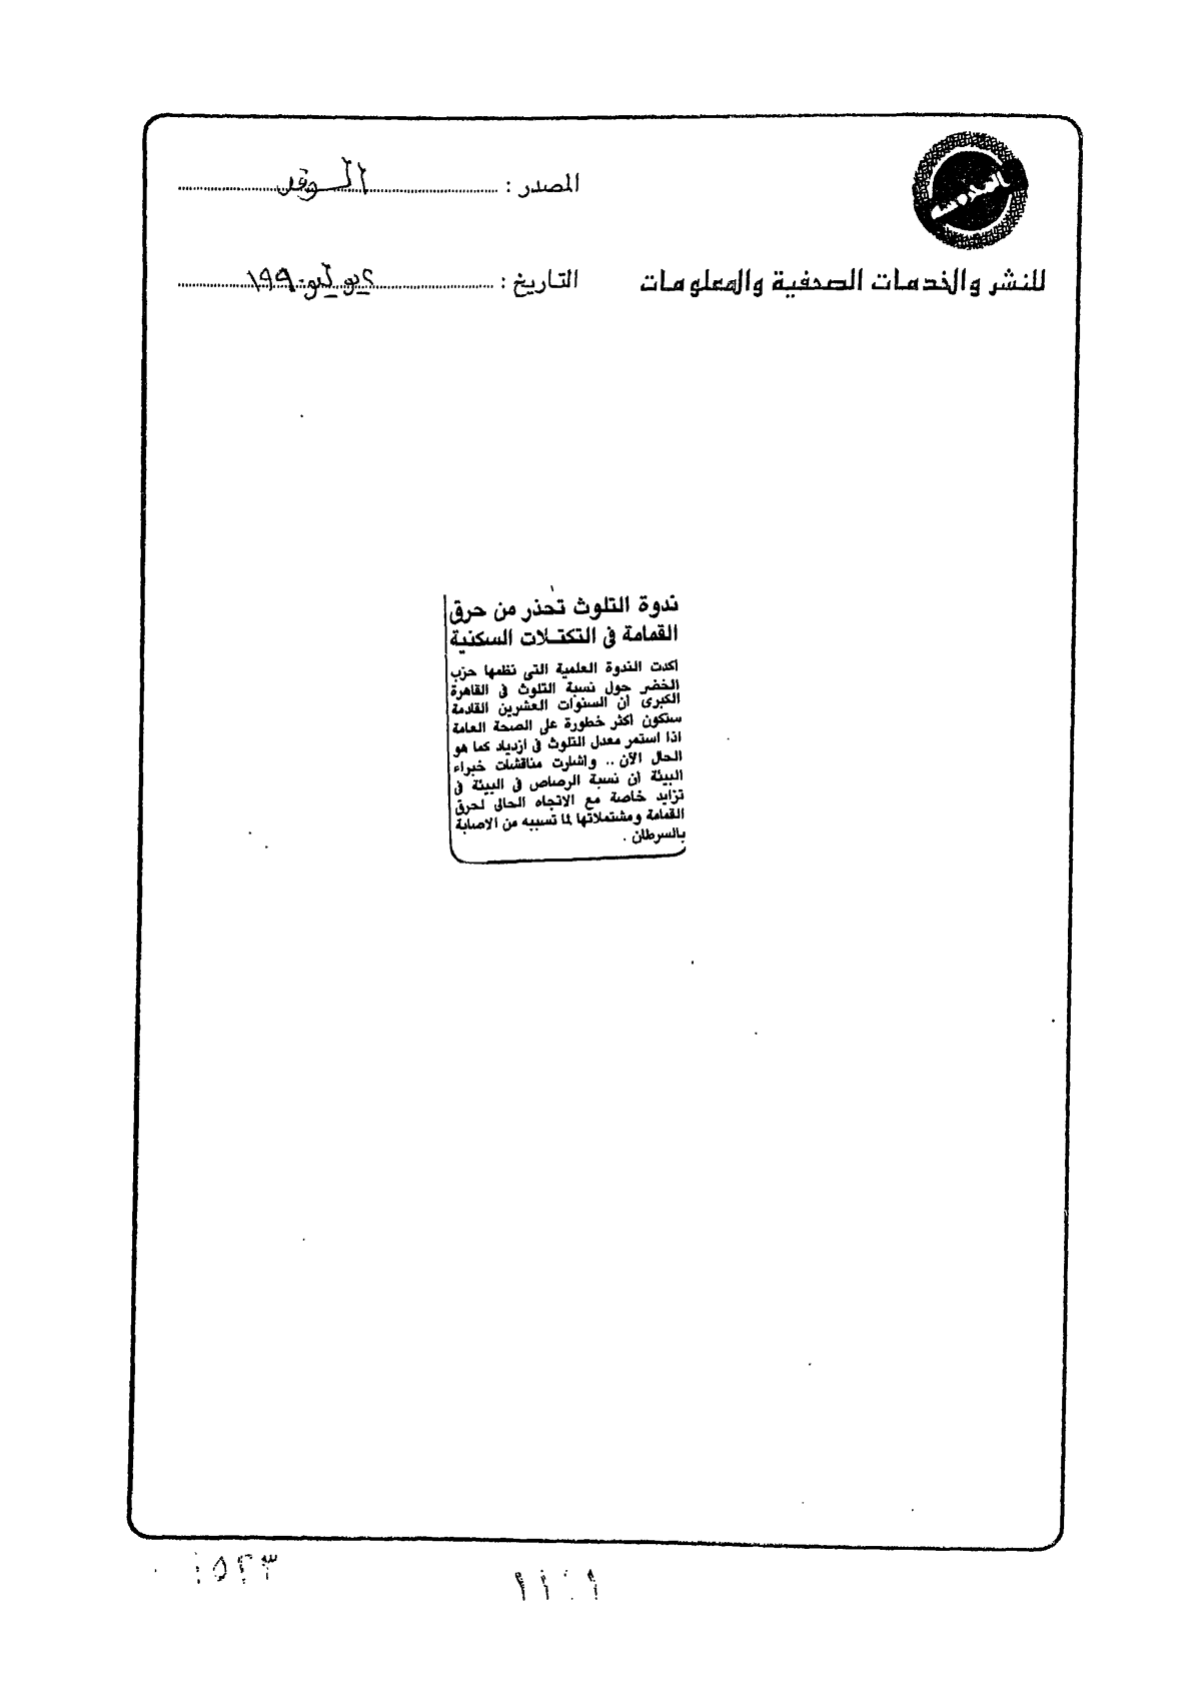 المصدر : الوفد
للنشر والخدمات الصحفية والمعلومات
التاريخ : ٢ يوليو ١٩٩٠
ندوة التلوث تحذر من حرق
القمامة فى التكتلات السكنية
اكدت الندوة العلمية التى نظمها حزب
الخضر حول نسبة التلوث فى القاهرة
الكبرى أن السنوات العشرين القادمة
ستكون أكثر خطورة على الصحة العامة
اذا استمر معدل التلوث فى ازدياد كما هو
الحال الآن .. واشارت مناقشات خبراء
البيئة أن نسبة الرصاص فى البيئة فى
تزايد خاصة مع الاتجاه الحالى لحرق
القمامة ومشتملاتها لما تسببه من الاصابة
بالسرطان .